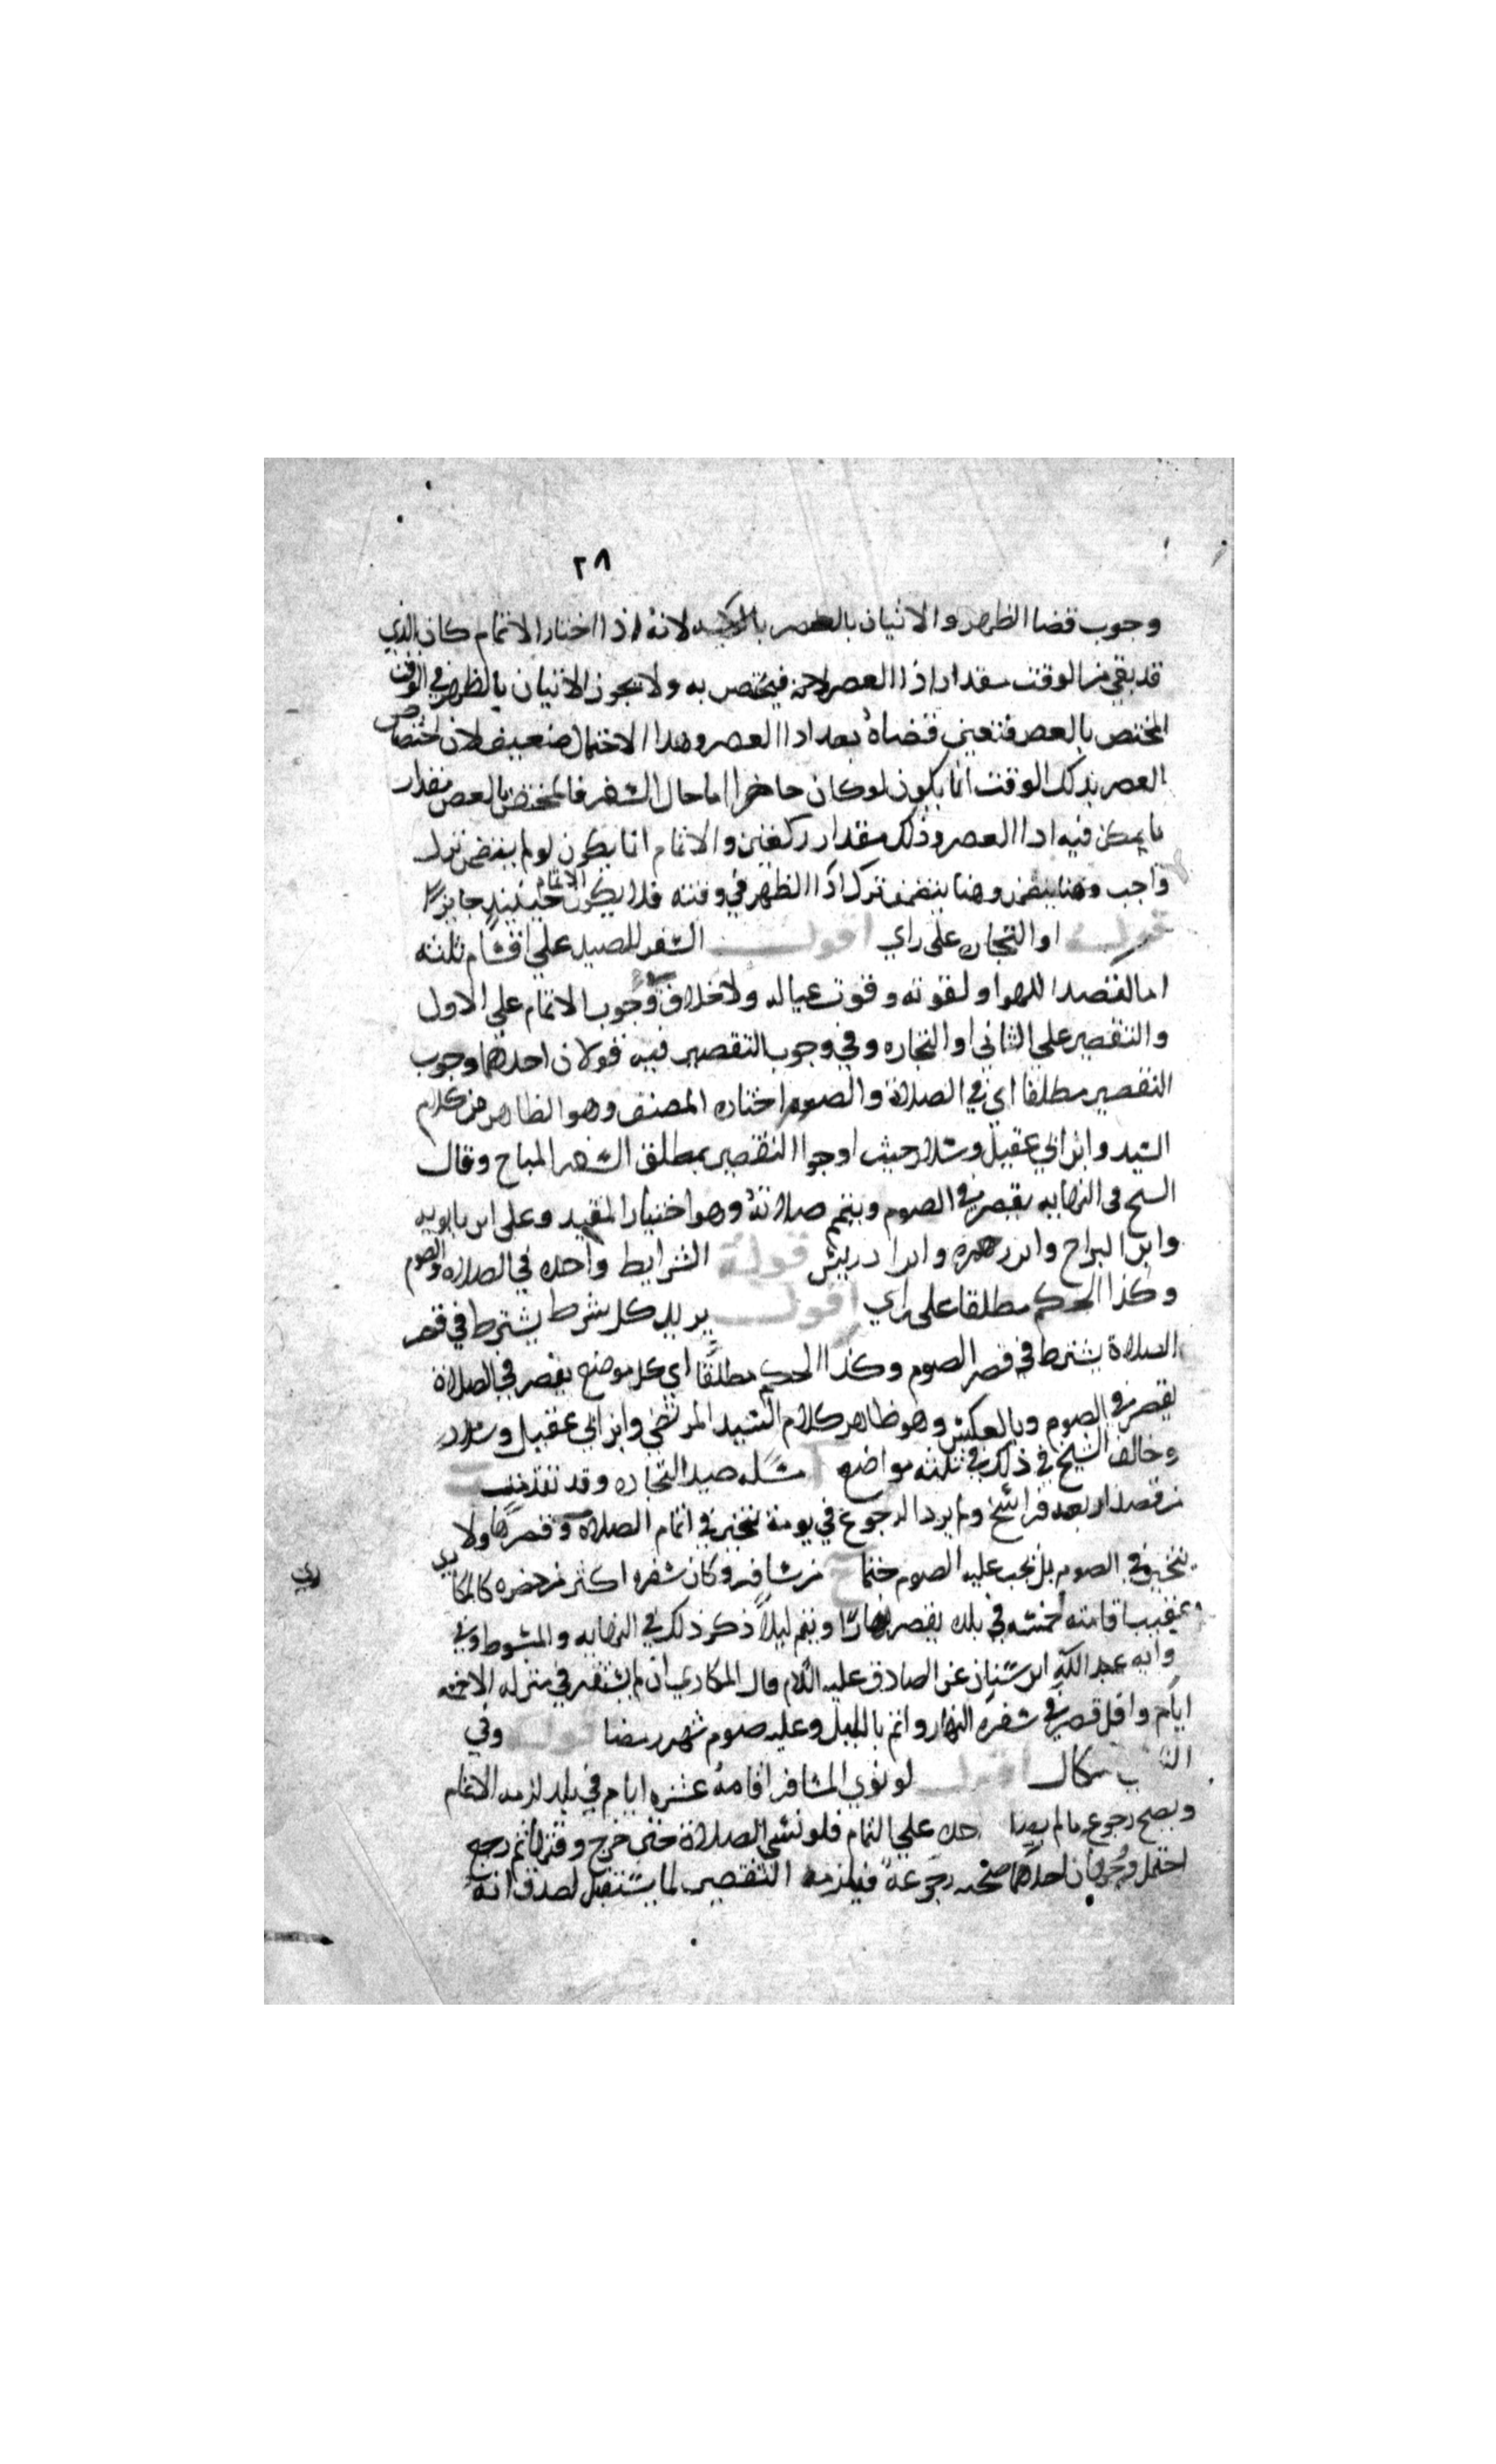 ٢٨
وجوب قضا الظهر والاتيان بالعصر لانه اذا اختار الاتمام كان الذي
قد بقي من الوقت مقدار اذا العصر لاجنه فيختص به ولا يجوز الاتيان بالظهر في الوقت
المختص بالعصر فتعين قضاه بعد ادا العصر وهدا الاحتمال ضعيف لان اختصاص
العصر بذلك الوقت انما يكون لو كان حاضرا اما حال السفر فالمختص بالعصر مقدار
ما يمكن فيه ادا العصر وذلك مقدار ركعتين والاتمام انما يكون لو لم يتضمن ترك
واجب وهنا يتضمن ترك ادا الظهر في وقته فلا يكون الاتمام حينيذ جايزا
قوله او التجاره على راي اقول السفر للصيد على اقسام ثلثه
اما لقصد اللهو او لقوته وقوت عياله ولا خلاف في وجوب الاتمام على الاول
والتقصير على الثاني او التجاره وفي وجوب التقصير فيه قولان احدهما وجوب
التقصير مطلقا اي في الصلاة والصوم اختاره المصنف وهو الظاهر من كلام
السيد وابن ابي عقيل وسلار حيث اوجبوا التقصير بمطلق السفر المباح وقال
الشيخ في النهايه يقصر في الصوم ويتم صلاته وهو اختيار المفيد وعلى ابن بابويه
وابن البراج وابن حمزه وابن ادريس قوله الشرايط واحده في الصلاه والصوم
وكذا الحكم مطلقا على راي اقول يريد كل شرط يشترط في قصر
الصلاة يشترط في قصر الصوم وكذا الحكم مطلقا اي كل موضع يقصر في الصلاة
يقصر في الصوم وبالعكس وهو ظاهر كلام السيد المرتضي وابن ابي عقيل وسلار
وخالف الشيخ في ذلك في ثلثه مواضع ا مسله صيد التجاره وقد تقدمت ب
من قصد اربعه فراسخ ولم يرد الرجوع في يومه تخير في اتمام الصلاه وقصرها ولا
يتخير في الصوم بل يجب عليه الصوم حتما ج من سافر وكان سفره اكثر من حضره كالمكاري
عقيب اقامته خمسه في بلده يقصر نهارا ويتم ليلا ذكر ذلك في النهايه والمبسوط وفي
رواية عبد الله ابن سنان عن الصادق عليه السلام قال المكاري ان لم يستقر في منزله الا خمسه
ايام واقل قصر في سفره النهار واتم بالليل وعليه صوم شهر رمضا قوله وفي
اشكال اقول لو نوي المسافر اقامه عشره ايام في بلد لزمه الاتمام
ويصح رجوعه ما لم على التمام فلو نسي الصلاة حتى خرج وقتها ثم رجع
احتمل وجهان احدهما صحه رجوعه فيلزمه التقصير لما يستقبل لصدق انه
ري